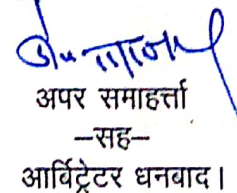 अपर समाहर्त्ता
–सह–
आर्विट्रेटर धनबाद।